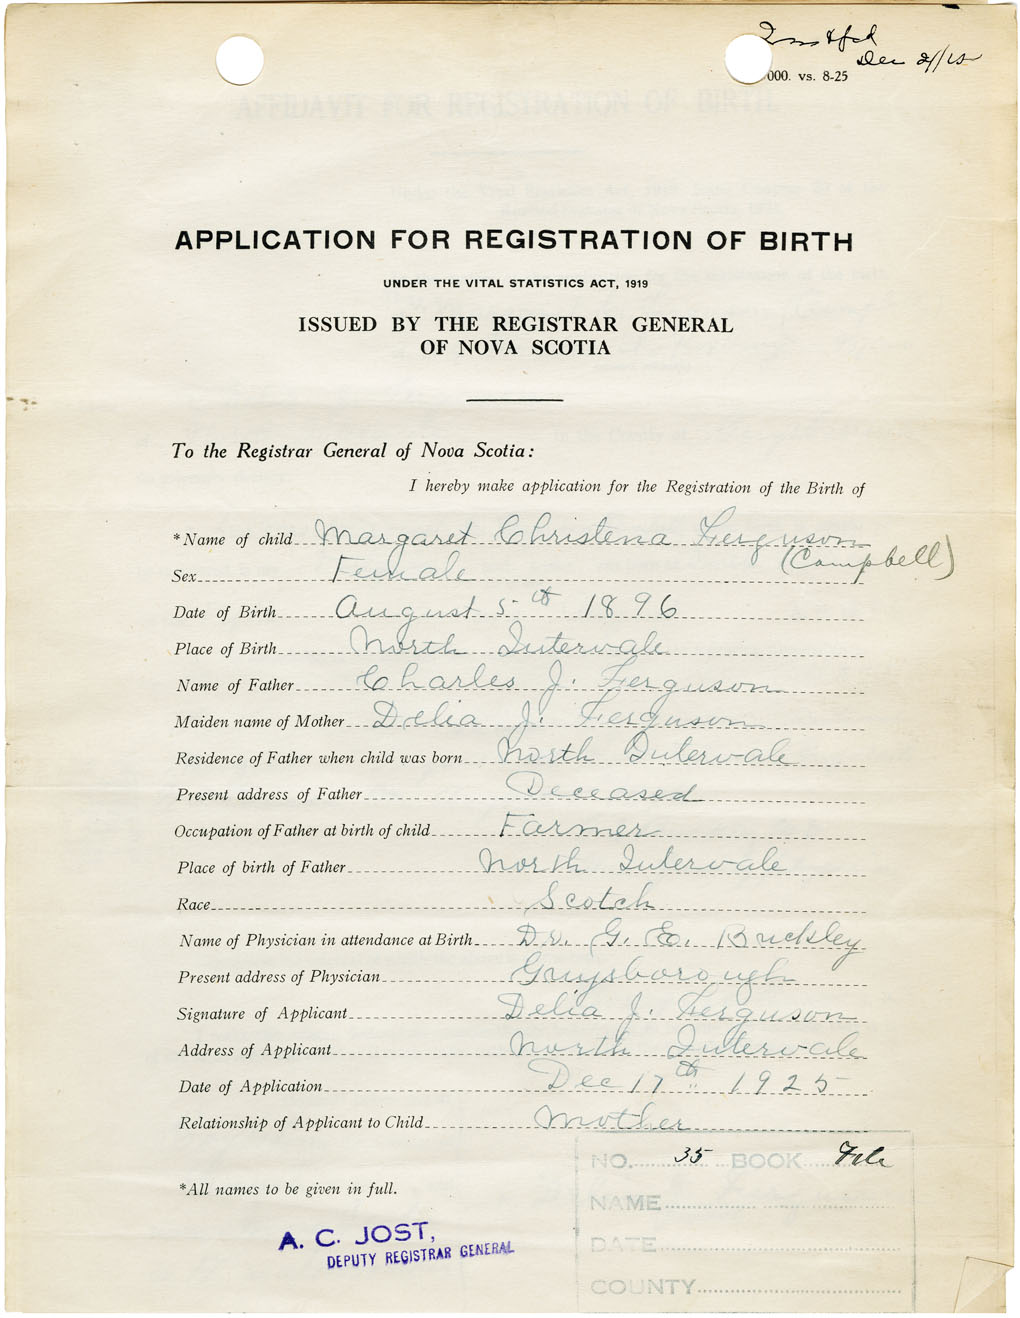 Dec 21/25
000. vs. 8-25
APPLICATION FOR REGISTRATION OF BIRTH
UNDER THE VITAL STATISTICS ACT, 1919
ISSUED BY THE REGISTRAR GENERAL
OF NOVA SCOTIA
To the Registrar General of Nova Scotia:
I hereby make application for the Registration of the Birth of
*Name of child Margaret Christena Ferguson
(Campbell)
Sex Female
Date of Birth August 5th 1896
Place of Birth North Intervale
Name of Father Charles J. Ferguson
Maiden name of Mother Delia J. Ferguson
Residence of Father when child was born North Intervale
Present address of Father Deceased
Occupation of Father at birth of child Farmer
Place of birth of Father North Intervale
Race Scotch
Name of Physician in attendance at Birth Dr. G. E. Buckley
Present address of Physician Guysborough
Signature of Applicant Delia J. Ferguson
Address of Applicant North Intervale
Date of Application Dec 17th 1925
Relationship of Applicant to Child Mother
NO. 35 BOOK File
*All names to be given in full.
NAME
A. C. JOST,
DEPUTY REGISTRAR GENERAL
DATE
COUNTY